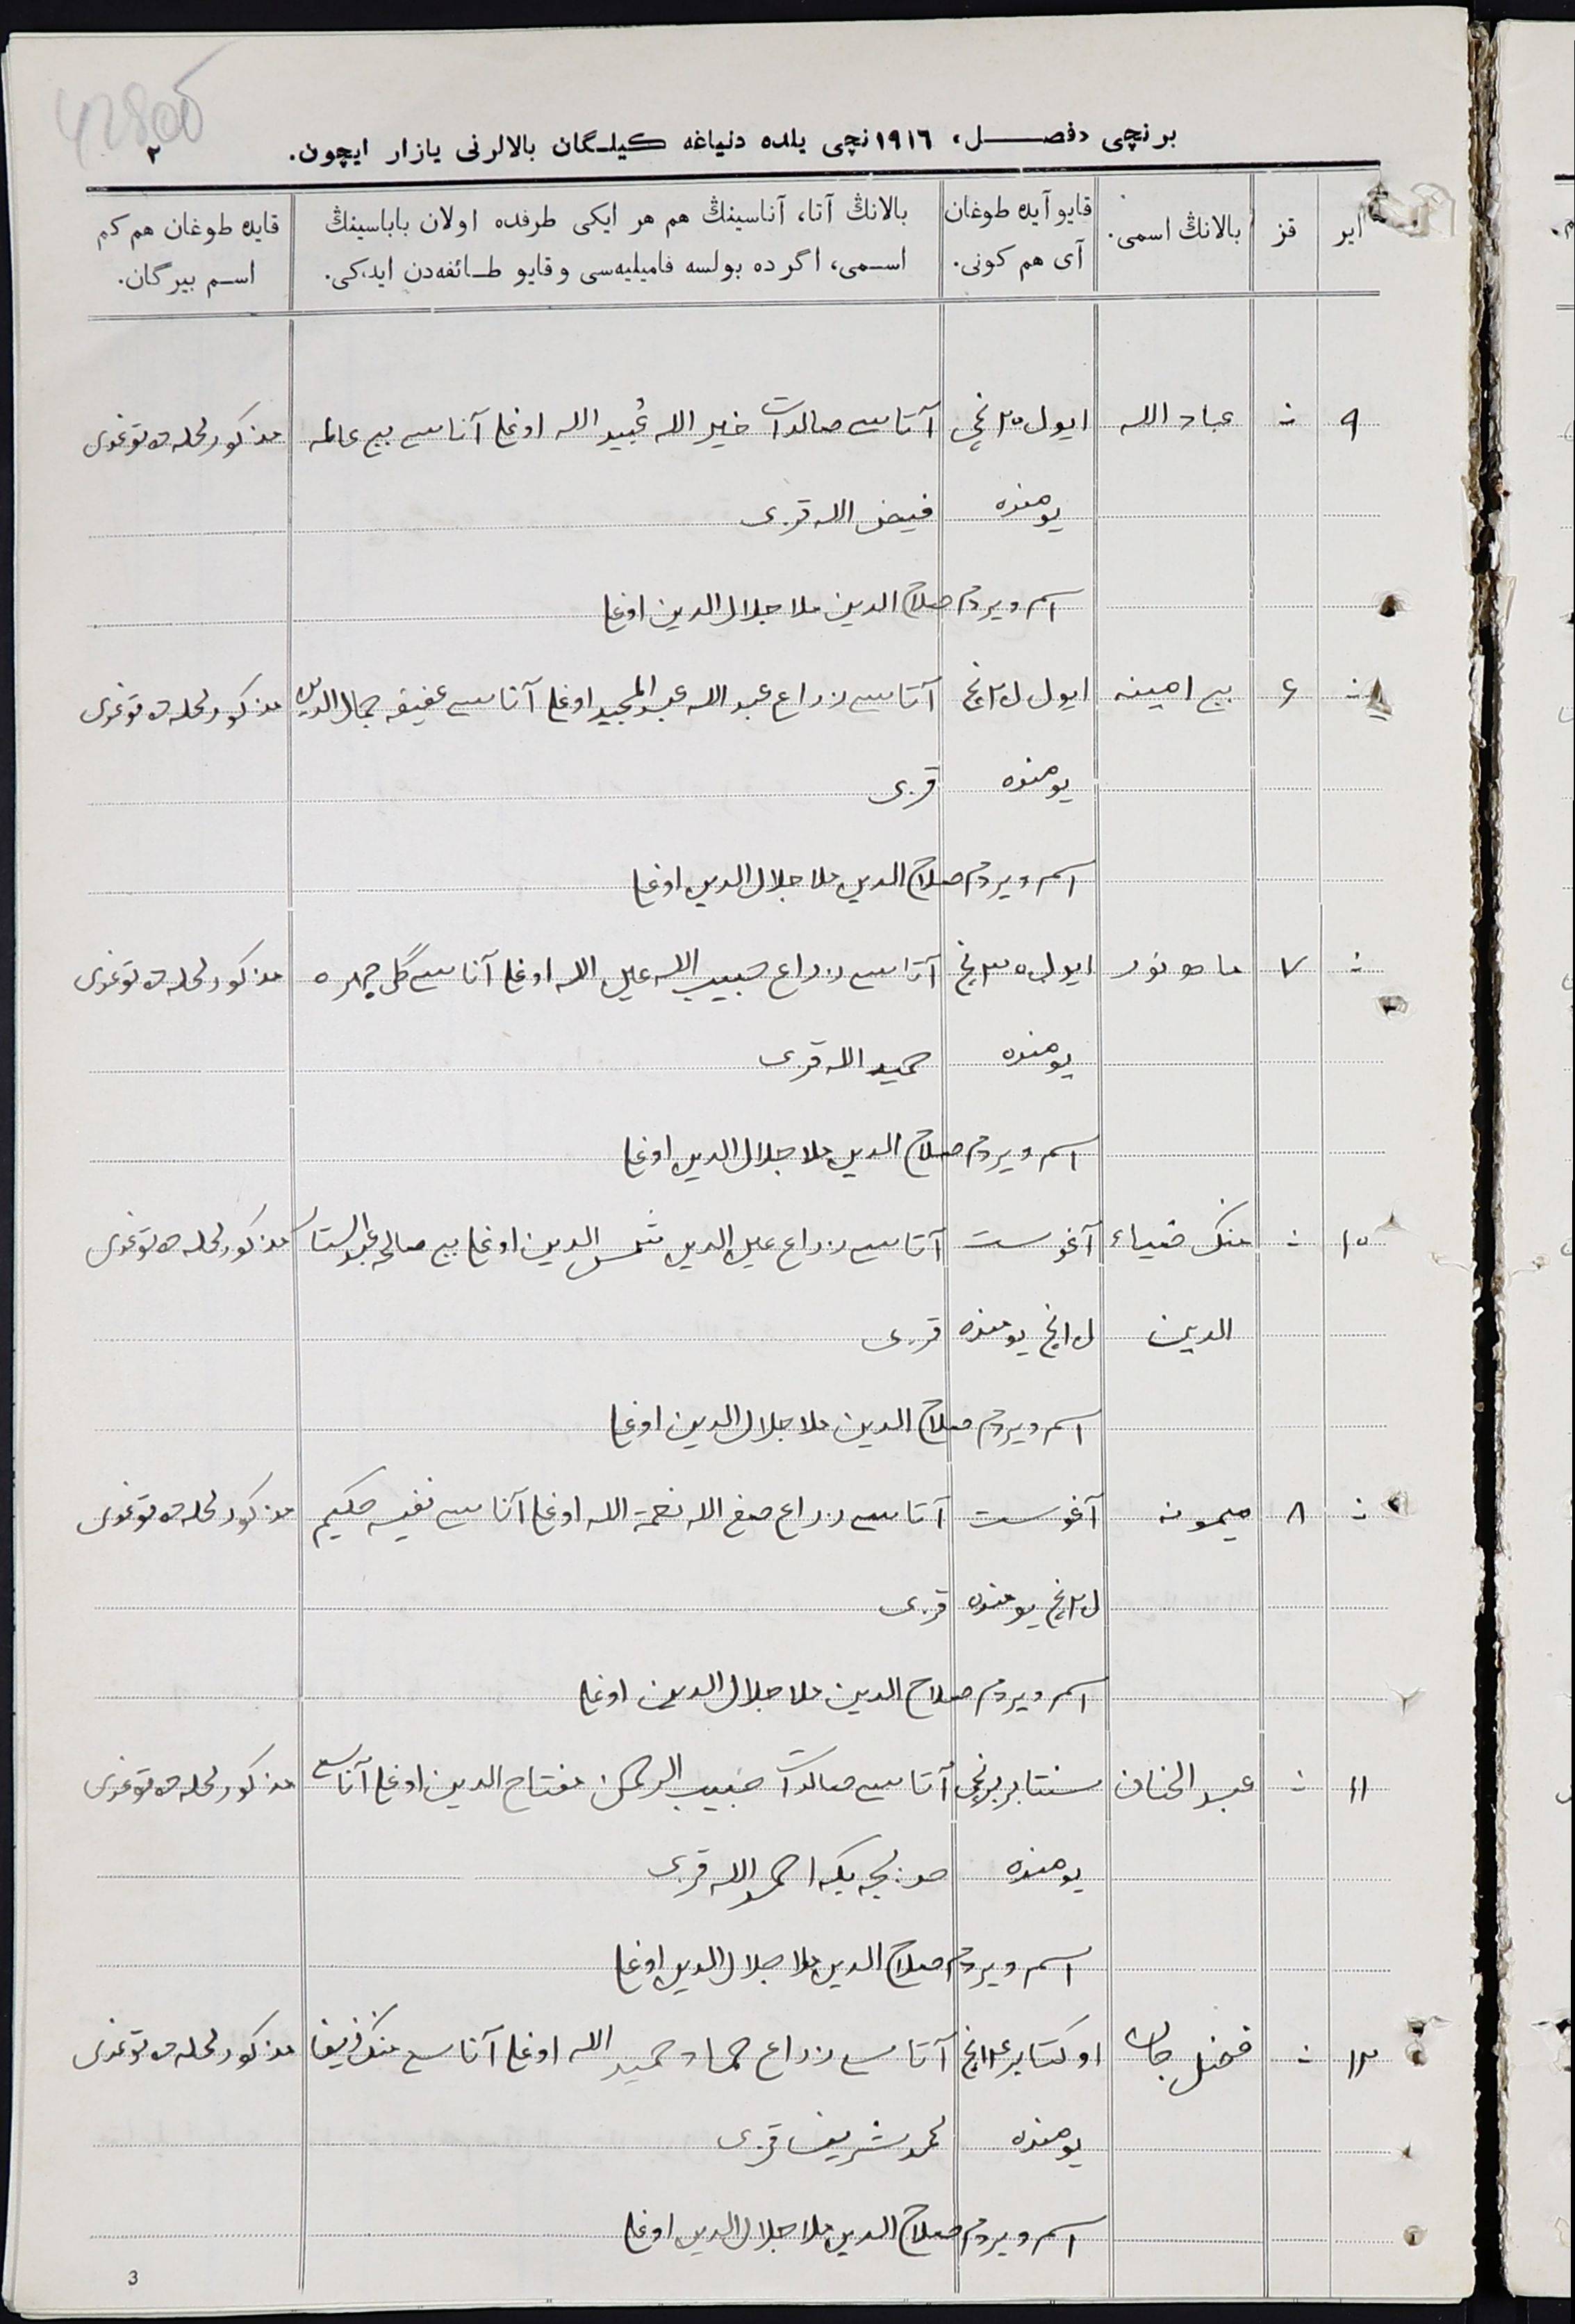 42800
برنچی «فصل» ١٩١٦نچی یلده دنیاغه کیلگان بالالرنی یازار ایچون.
٢
ایر
قز
بالانڭ اسمی.
قایو آیده طوغان آی هم کونی.
بالانڭ آتا، آناسینڭ هم هر ایکی طرفده اولان باباسینڭ اسمی، اگر ده بولسه فامیلیه‌سی و قایو طائفه‌دن ایدکی.
قایده طوغان هم کم اسم بیرگان.
٩ عباد الله ایول ٢٥نچی آتاسی صالدات خیر الله عُبید الله اوغلی آناسی بیبی عالمه مذکور محله ده توغدی
یومنده فیض الله قزی
اسم ویردم صلاح الدین ملا جلال الدین اوغلی
٦ بیبی امینه ایول آتاسی زراع عبد الله عبد المجید اوغلی آناسی عفیفه جمال الدین مذکور محله ده توغدی
یومنده قزی
اسم ویردم صلاح الدین ملا جلال الدین اوغلی
٧ ماه نور ایول آتاسی زراع حبیب الله علیم الله اوغلی آناسی گل چهره مذکور محله ده توغدی
یومنده حمید الله قزی
اسم ویردم صلاح الدین ملا جلال الدین اوغلی
١٠ منک ضیاء آغوست آتاسی زراع علیم الدین شمس الدین اوغلی بیبی صالحه عبد الستار مذکور محله ده توغدی
الدین یومنده قزی
اسم ویردم صلاح الدین ملا جلال الدین اوغلی
٨ میمونه آغوست آتاسی زراع صفی الله نعمة الله اوغلی آناسی نفیسه حکیم مذکور محله ده توغدی
یومنده قزی
اسم ویردم صلاح الدین ملا جلال الدین اوغلی
١١ عبد الحنان سنتابر برنچی آتاسی صالدات حبیب الرحمن مفتاح الدین اوغلی آناسی مذکور محله ده توغدی
یومنده بیکه احمد الله قزی
اسم ویردم صلاح الدین ملا جلال الدین اوغلی
١٢ فضل جان اوکتابر آتاسی زراع حماد حمید الله اوغلی آناسی منک ظریفا مذکور محله ده توغدی
یومنده محمد شریف قزی
اسم ویردم صلاح الدین ملا جلال الدین اوغلی
3